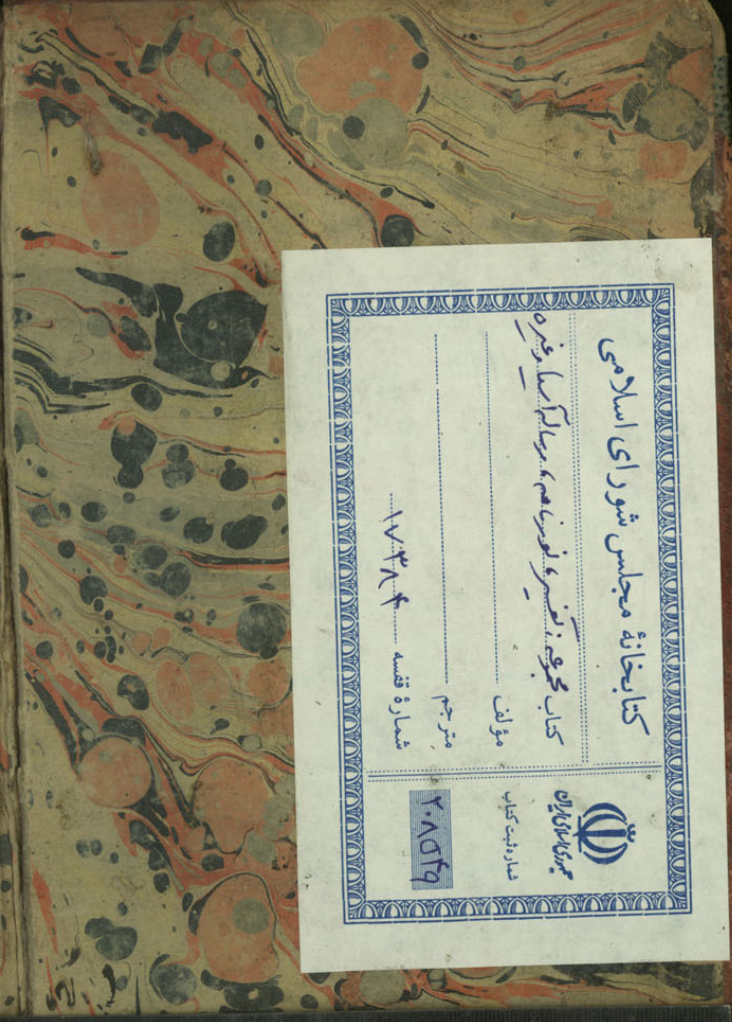 کتابخانهٔ مجلس شورای اسلامی
کتاب مجموعه: تفسیر، نورنامه، رساله آسیا و غیره
مؤلف
مترجم
شمارهٔ قفسه ۱۷۳۸۴
جمهوری اسلامی ایران
شماره ثبت کتاب
۲۰۸۵۴۹